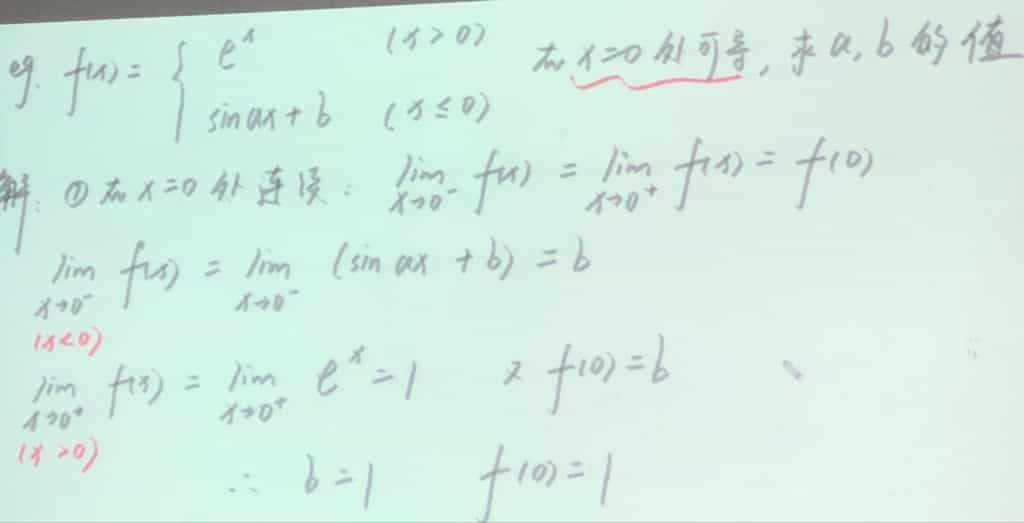 eg. f(x) = { e^x (x > 0)
sin ax + b (x ≤ 0)
在 x=0 处可导, 求 a, b 的值
解: ① 在 x=0 处连续: lim x→0⁻ f(x) = lim x→0⁺ f(x) = f(0)
lim x→0⁻ f(x) = lim x→0⁻ (sin ax + b) = b
(x<0)
lim x→0⁺ f(x) = lim x→0⁺ e^x = 1 又 f(0) = b
(x>0)
∴ b = 1 f(0) = 1